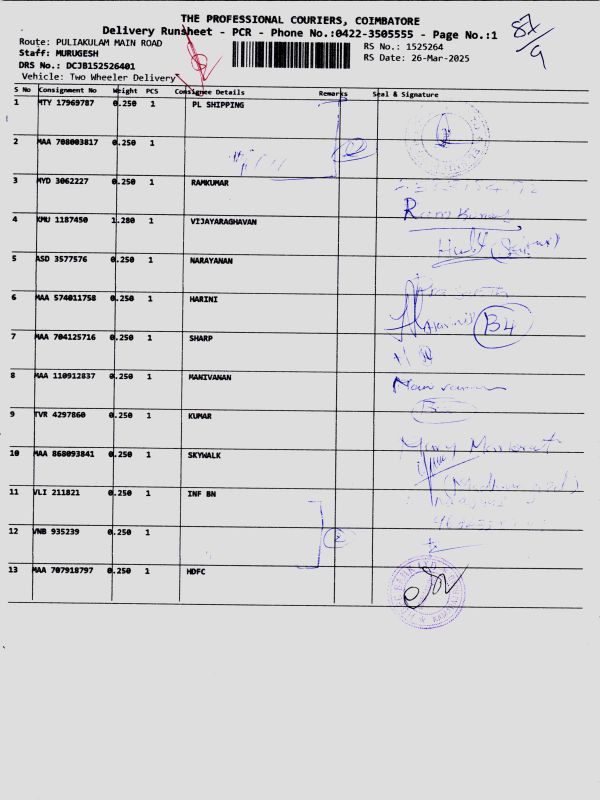 THE PROFESSIONAL COURIERS, COIMBATORE
Delivery Runsheet - PCR - Phone No.:0422-3505555 - Page No.:1
87/9
Route: PULIAKULAM MAIN ROAD
RS No.: 1525264
Staff: MURUGESH
RS Date: 26-Mar-2025
DRS No.: DCJB152526401
Vehicle: Two Wheeler Delivery
S No Consignment No Weight PCS Consignee Details Remarks Seal & Signature
1 MTY 17969787 0.250 1 PL SHIPPING
2 MAA 708003817 0.250 1
3 MYD 3062227 0.250 1 RAMKUMAR
Ram Kumar
4 KMU 1187450 1.280 1 VIJAYARAGHAVAN
5 ASD 3577576 0.250 1 NARAYANAN
6 MAA 574011758 0.250 1 HARINI
Harini B4
7 MAA 704125716 0.250 1 SHARP
8 MAA 110912837 0.250 1 MANIVANAN
9 TVR 4297860 0.250 1 KUMAR
10 MAA 868093841 0.250 1 SKYWALK
11 VLI 211821 0.250 1 INF BN
12 VNB 935239 0.250 1
2
13 MAA 707918797 0.250 1 HDFC